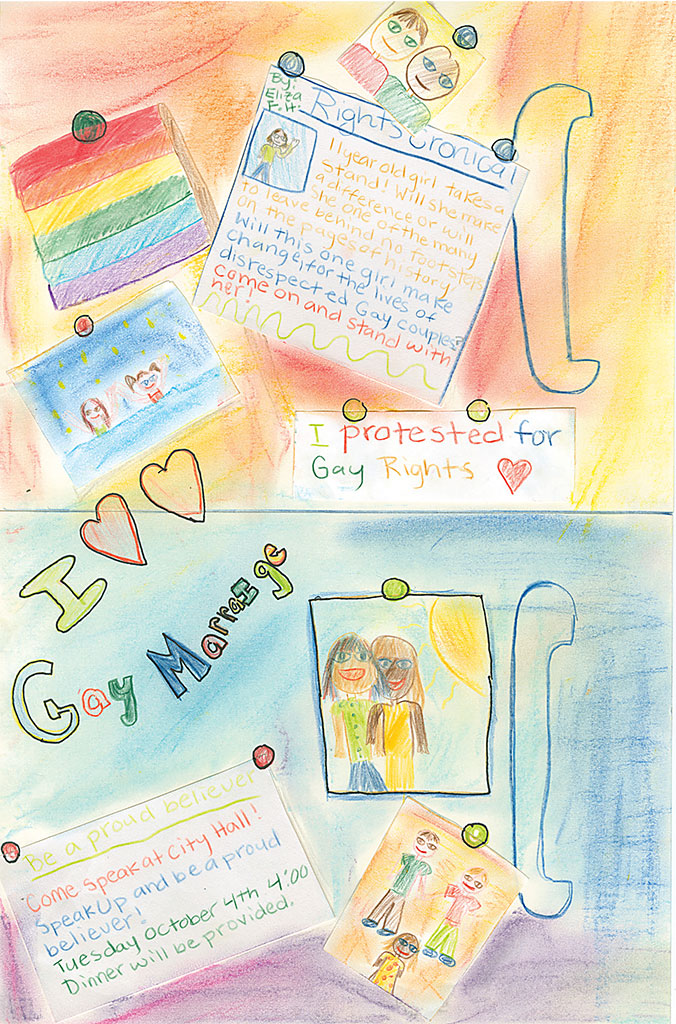 By:
Eliza
F.H.
Rights Cronical
11 year old girl takes a
stand! Will she make
a difference or will
she one of the many
to leave behind no footsteps
on the pages of history
Will this one girl make
change, for the lives of
disrespected Gay couples?
come on and stand with
her!
I protested for
Gay Rights
I
Gay Marraige
Be a proud believer
Come speak at City Hall!
Speak Up and be a proud
believer!
Tuesday October 4th 4:00
Dinner will be provided.